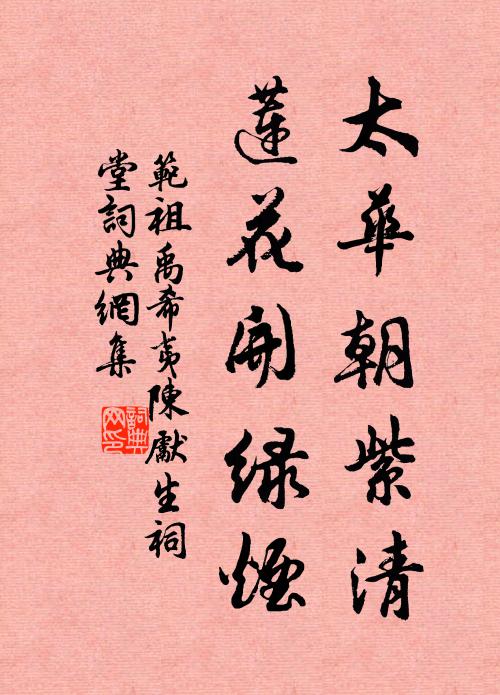 太華朝紫清
蓮花開緑煙
範祖禹希夷陳獻生祠
堂詞典網集
詞典網印